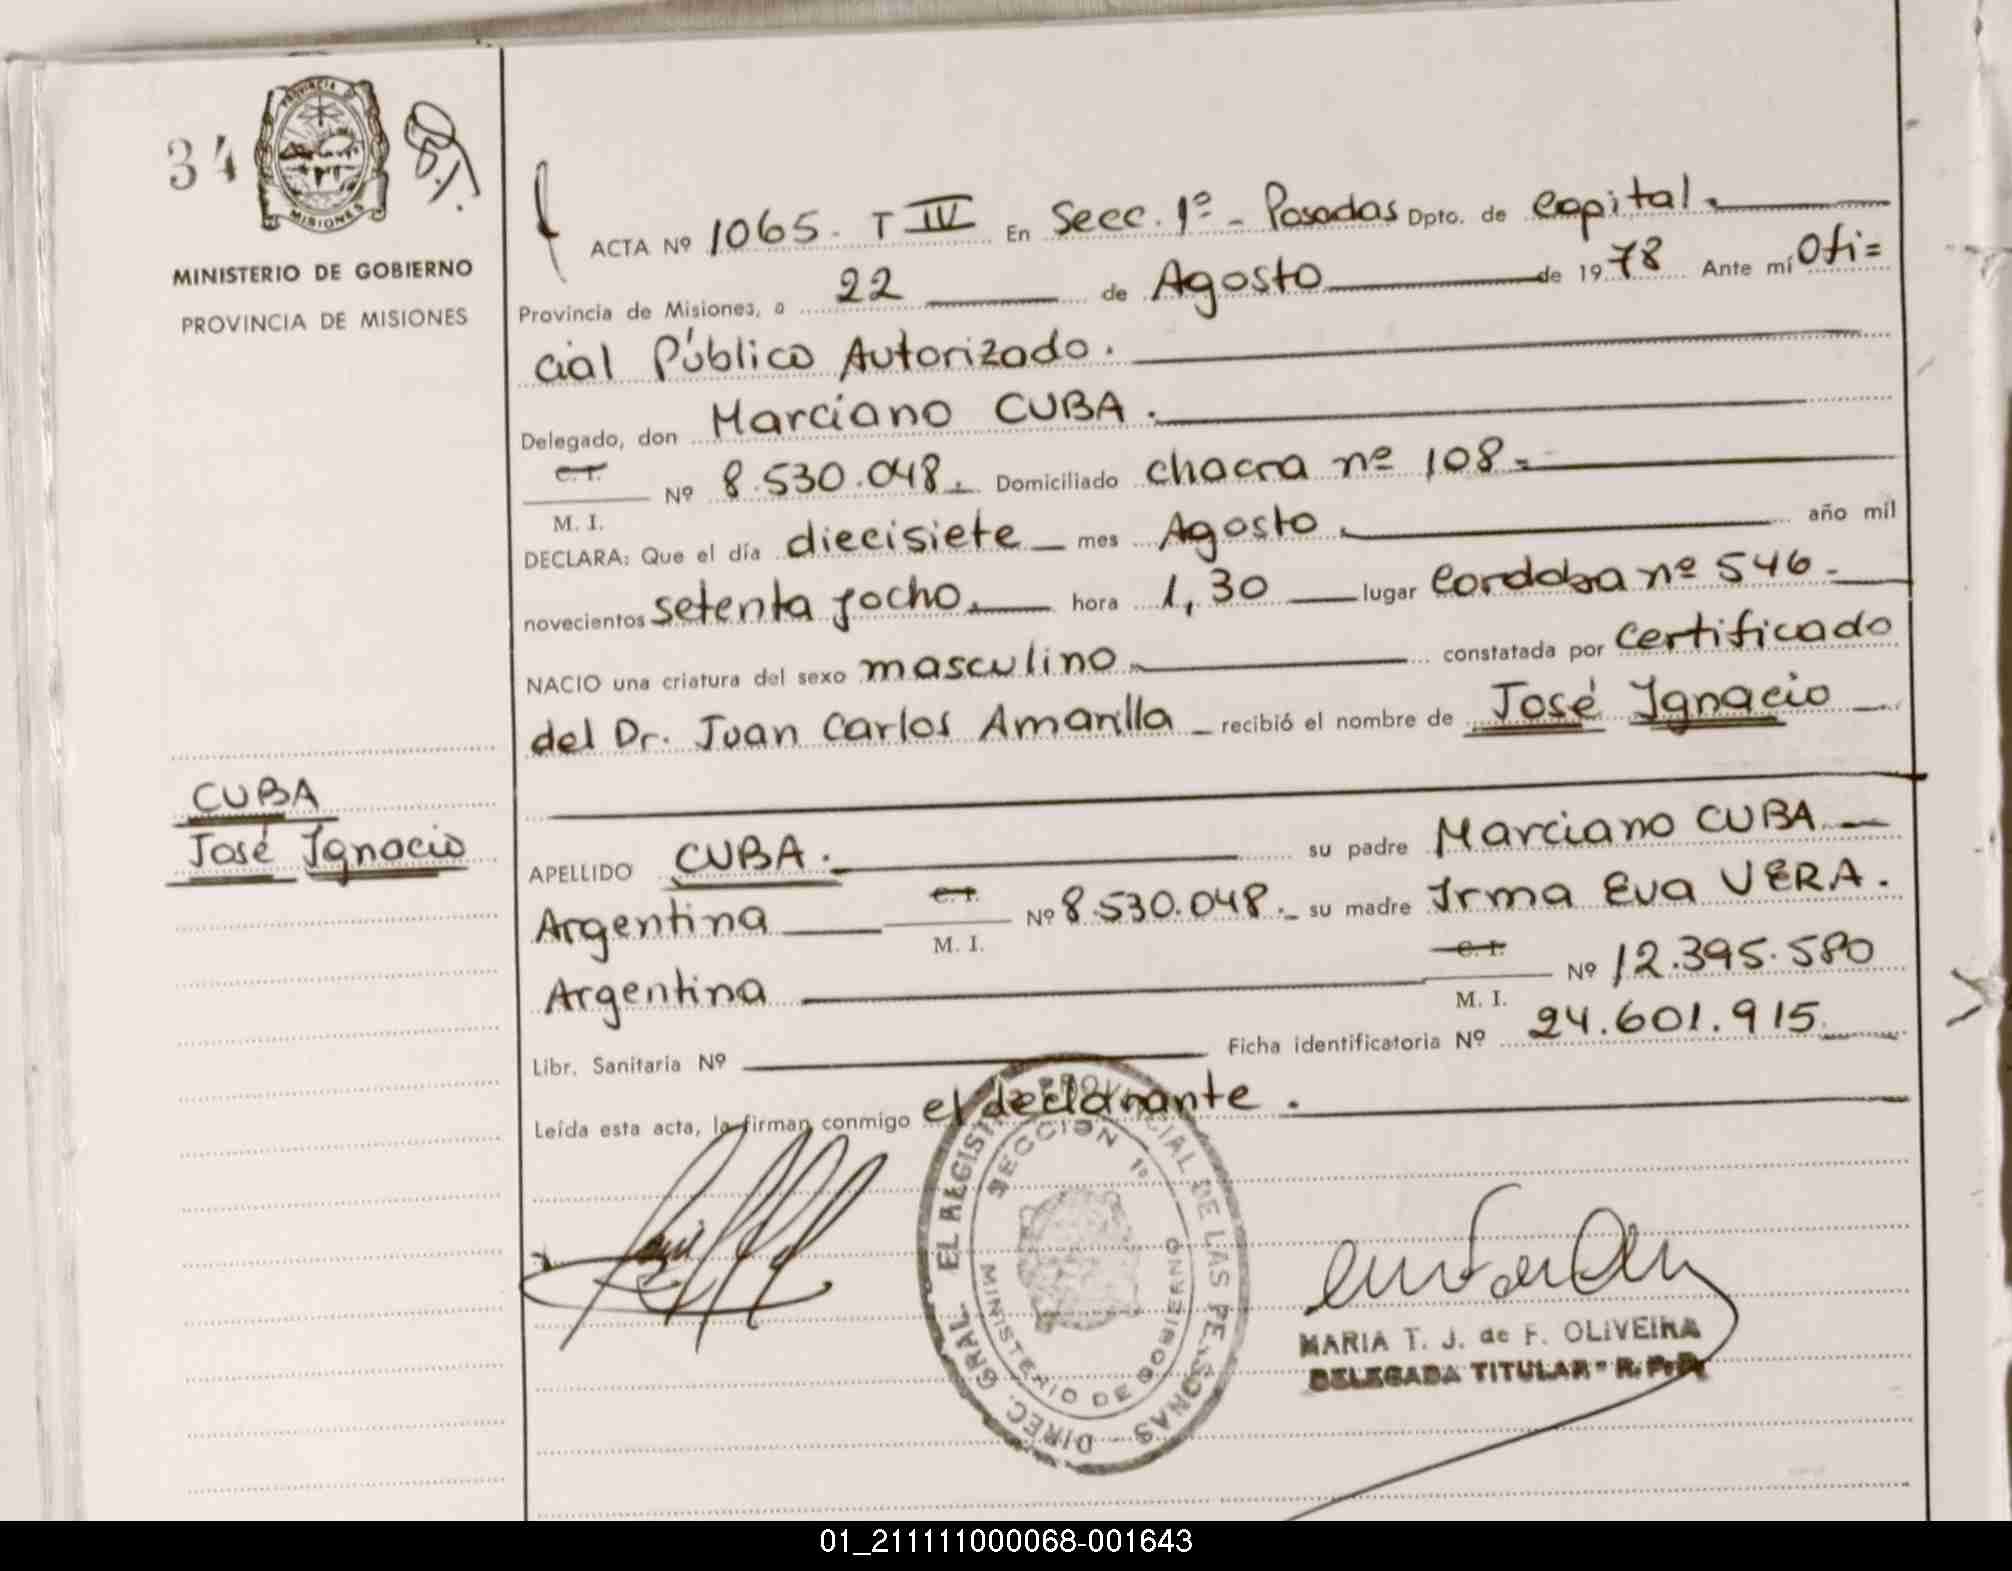 34
PROVINCIA D
MISIONES
MINISTERIO DE GOBIERNO
PROVINCIA DE MISIONES
ACTA Nº 1065. T IV En Secc. 1º - Posadas Dpto. de Capital.
Provincia de Misiones, a 22 de Agosto de 1978 Ante mí Ofi=
cial Público Autorizado.
Delegado, don Marciano CUBA.
C. I.
M. I. Nº 8.530.048. Domiciliado chacra nº 108-
DECLARA: Que el día diecisiete mes Agosto año mil
novecientos setenta y ocho. hora 1,30 lugar Cordoba nº 546-
NACIO una criatura del sexo masculino constatada por certificado
del Dr. Juan Carlos Amarilla recibió el nombre de José Ignacio
CUBA
José Ignacio
APELLIDO CUBA. su padre Marciano CUBA
Argentina C. I. M. I. Nº 8.530.048. su madre Irma Eva VERA.
Argentina C. I. M. I. Nº 12.395.580
Libr. Sanitaria Nº Ficha identificatoria Nº 24.601.915
Leída esta acta, la firman conmigo el declarante.
DIREC. GRAL. EL REGIST PROVINCIAL DE LAS PERSONAS
SECCION 1º
MINISTERIO DE GOBIERNO
MARIA T. J. de F. OLIVEIRA
DELEGADA TITULAR - R.P.P.
01_211111000068-001643